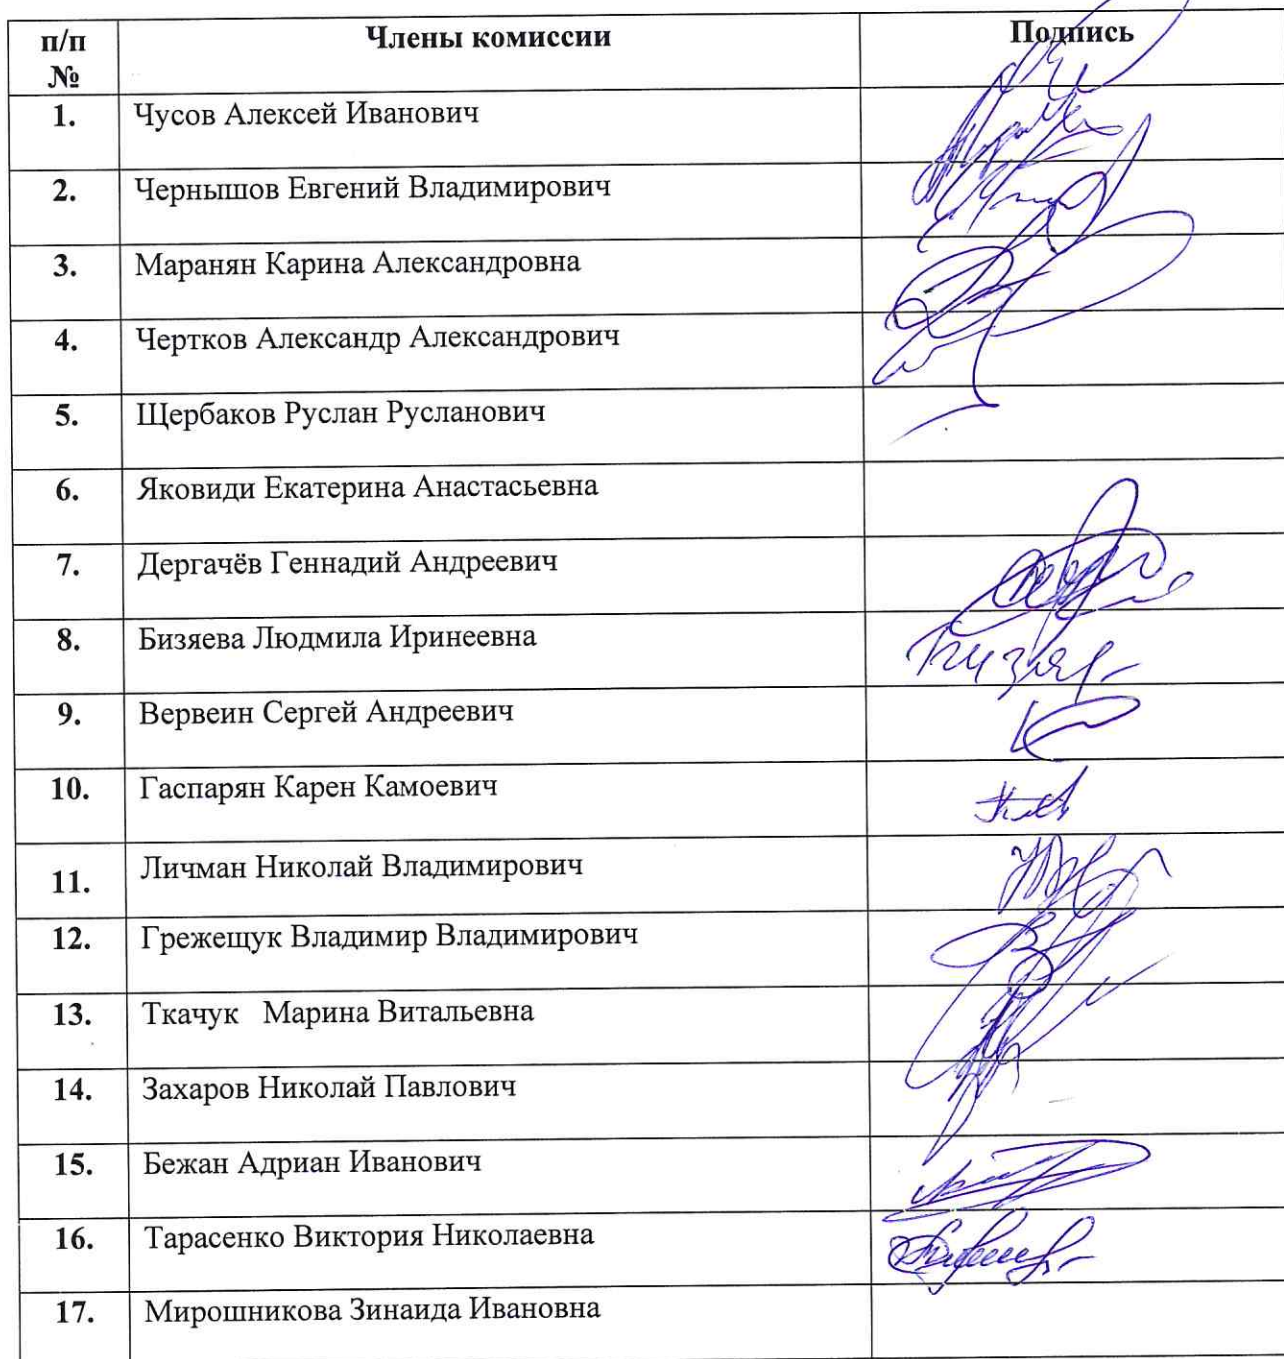 п/п № Члены комиссии Подпись
1. Чусов Алексей Иванович
2. Чернышов Евгений Владимирович
3. Маранян Карина Александровна
4. Чертков Александр Александрович
5. Щербаков Руслан Русланович
6. Яковиди Екатерина Анастасьевна
7. Дергачёв Геннадий Андреевич
8. Бизяева Людмила Иринеевна
9. Вервеин Сергей Андреевич
10. Гаспарян Карен Камоевич
11. Личман Николай Владимирович
12. Грежещук Владимир Владимирович
13. Ткачук Марина Витальевна
14. Захаров Николай Павлович
15. Бежан Адриан Иванович
16. Тарасенко Виктория Николаевна
17. Мирошникова Зинаида Ивановна